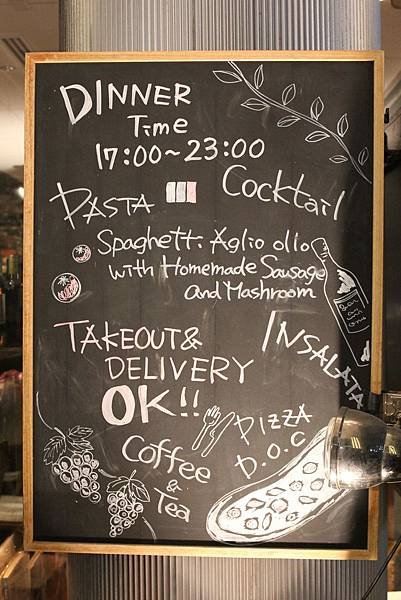 DINNER
Time
17:00~23:00
Cocktail
PASTA
Spaghetti Aglio ollo
with Homemade Sausage
and Mashroom
TAKEOUT&
DELIVERY
OK!!
INSALATA
PIZZA
D.O.C
Coffee
&
Tea